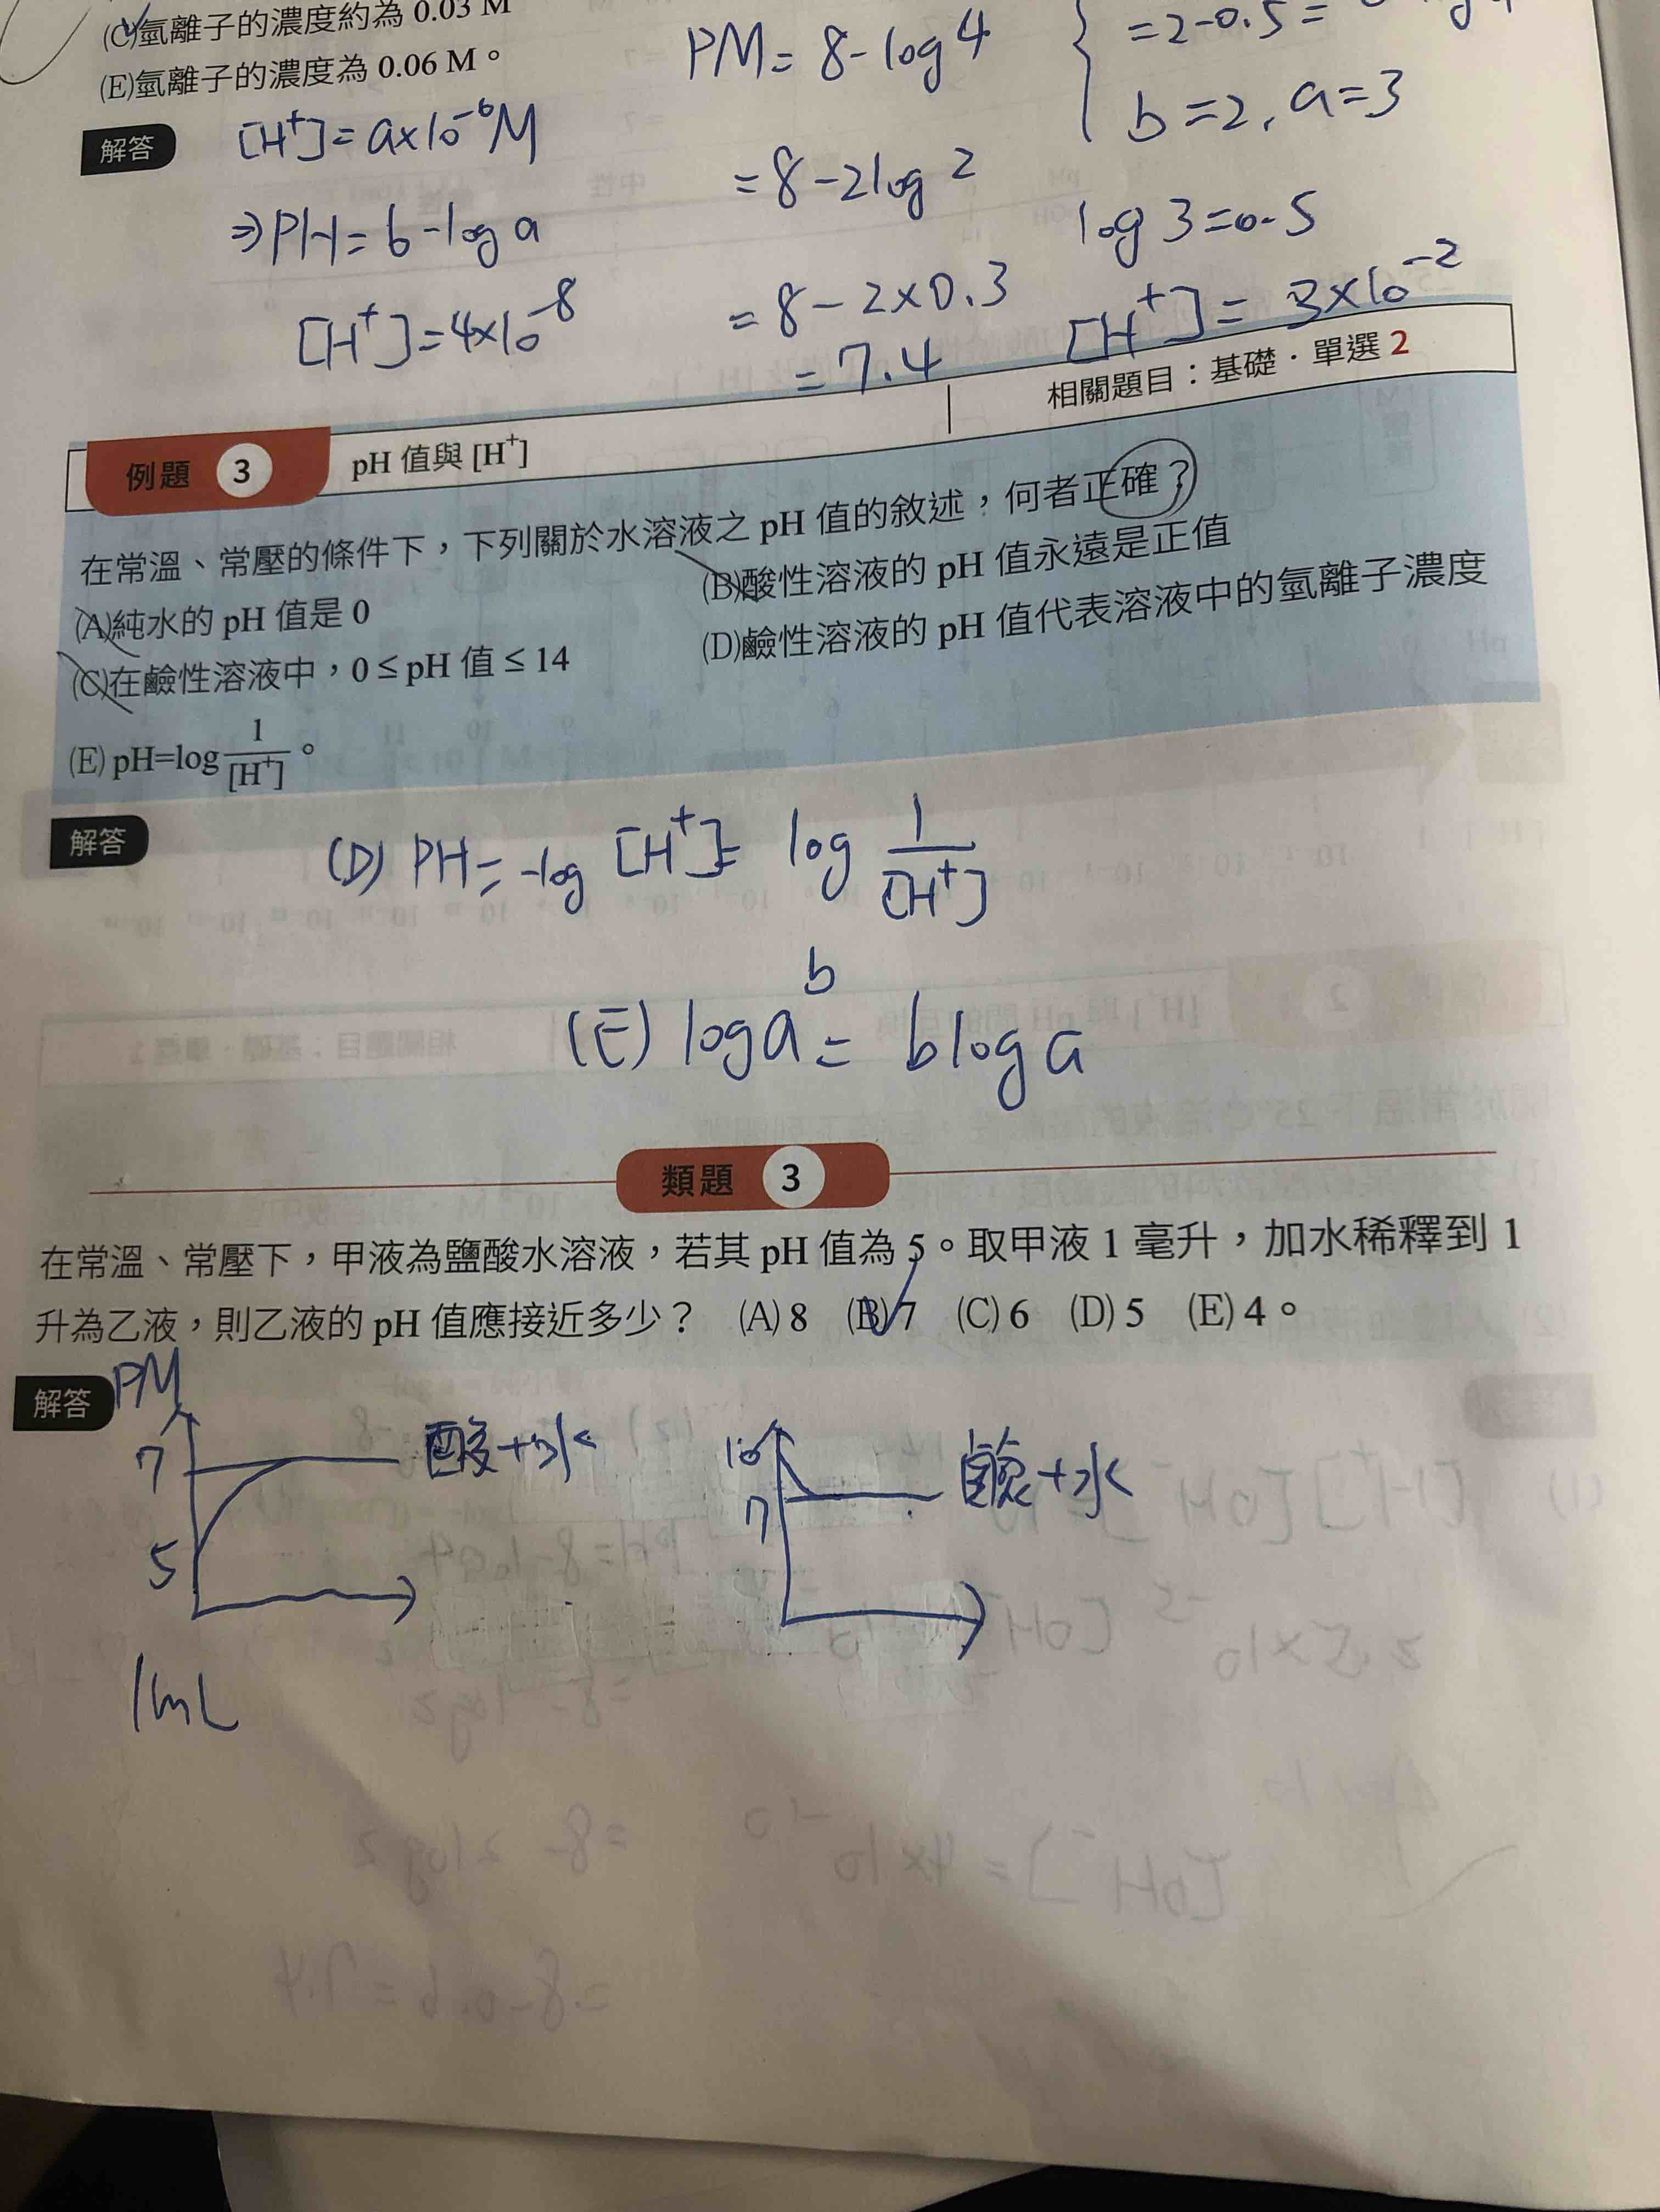 (C)氫離子的濃度約為 0.03 M
(E)氫離子的濃度為 0.06 M。
解答
[H⁺]=a×10⁻⁶M
⇒PH=b-log a
[H⁺]=4×10⁻⁸
PM=8-log4
=8-2log2
=8-2×0.3
=7.4
=2-0.5=
b=2,a=3
log3=0.5
[H⁺]=3×10⁻²
例題 3 pH 值與 [H⁺] 相關題目：基礎．單選 2
在常溫、常壓的條件下，下列關於水溶液之 pH 值的敘述，何者正確？
(A)純水的 pH 值是 0 (B)酸性溶液的 pH 值永遠是正值
(C)在鹼性溶液中，0 ≤ pH 值 ≤ 14 (D)鹼性溶液的 pH 值代表溶液中的氫離子濃度
(E) pH=log 1/[H⁺]。
解答
(D) PH=-log[H⁺]=log 1/[H⁺]
(E) logaᵇ=bloga
類題 3
在常溫、常壓下，甲液為鹽酸水溶液，若其 pH 值為 5。取甲液 1 毫升，加水稀釋到 1
升為乙液，則乙液的 pH 值應接近多少？ (A) 8 (B) 7 (C) 6 (D) 5 (E) 4。
解答
PM
7
酸+水
5
10
7
鹼+水
1mL